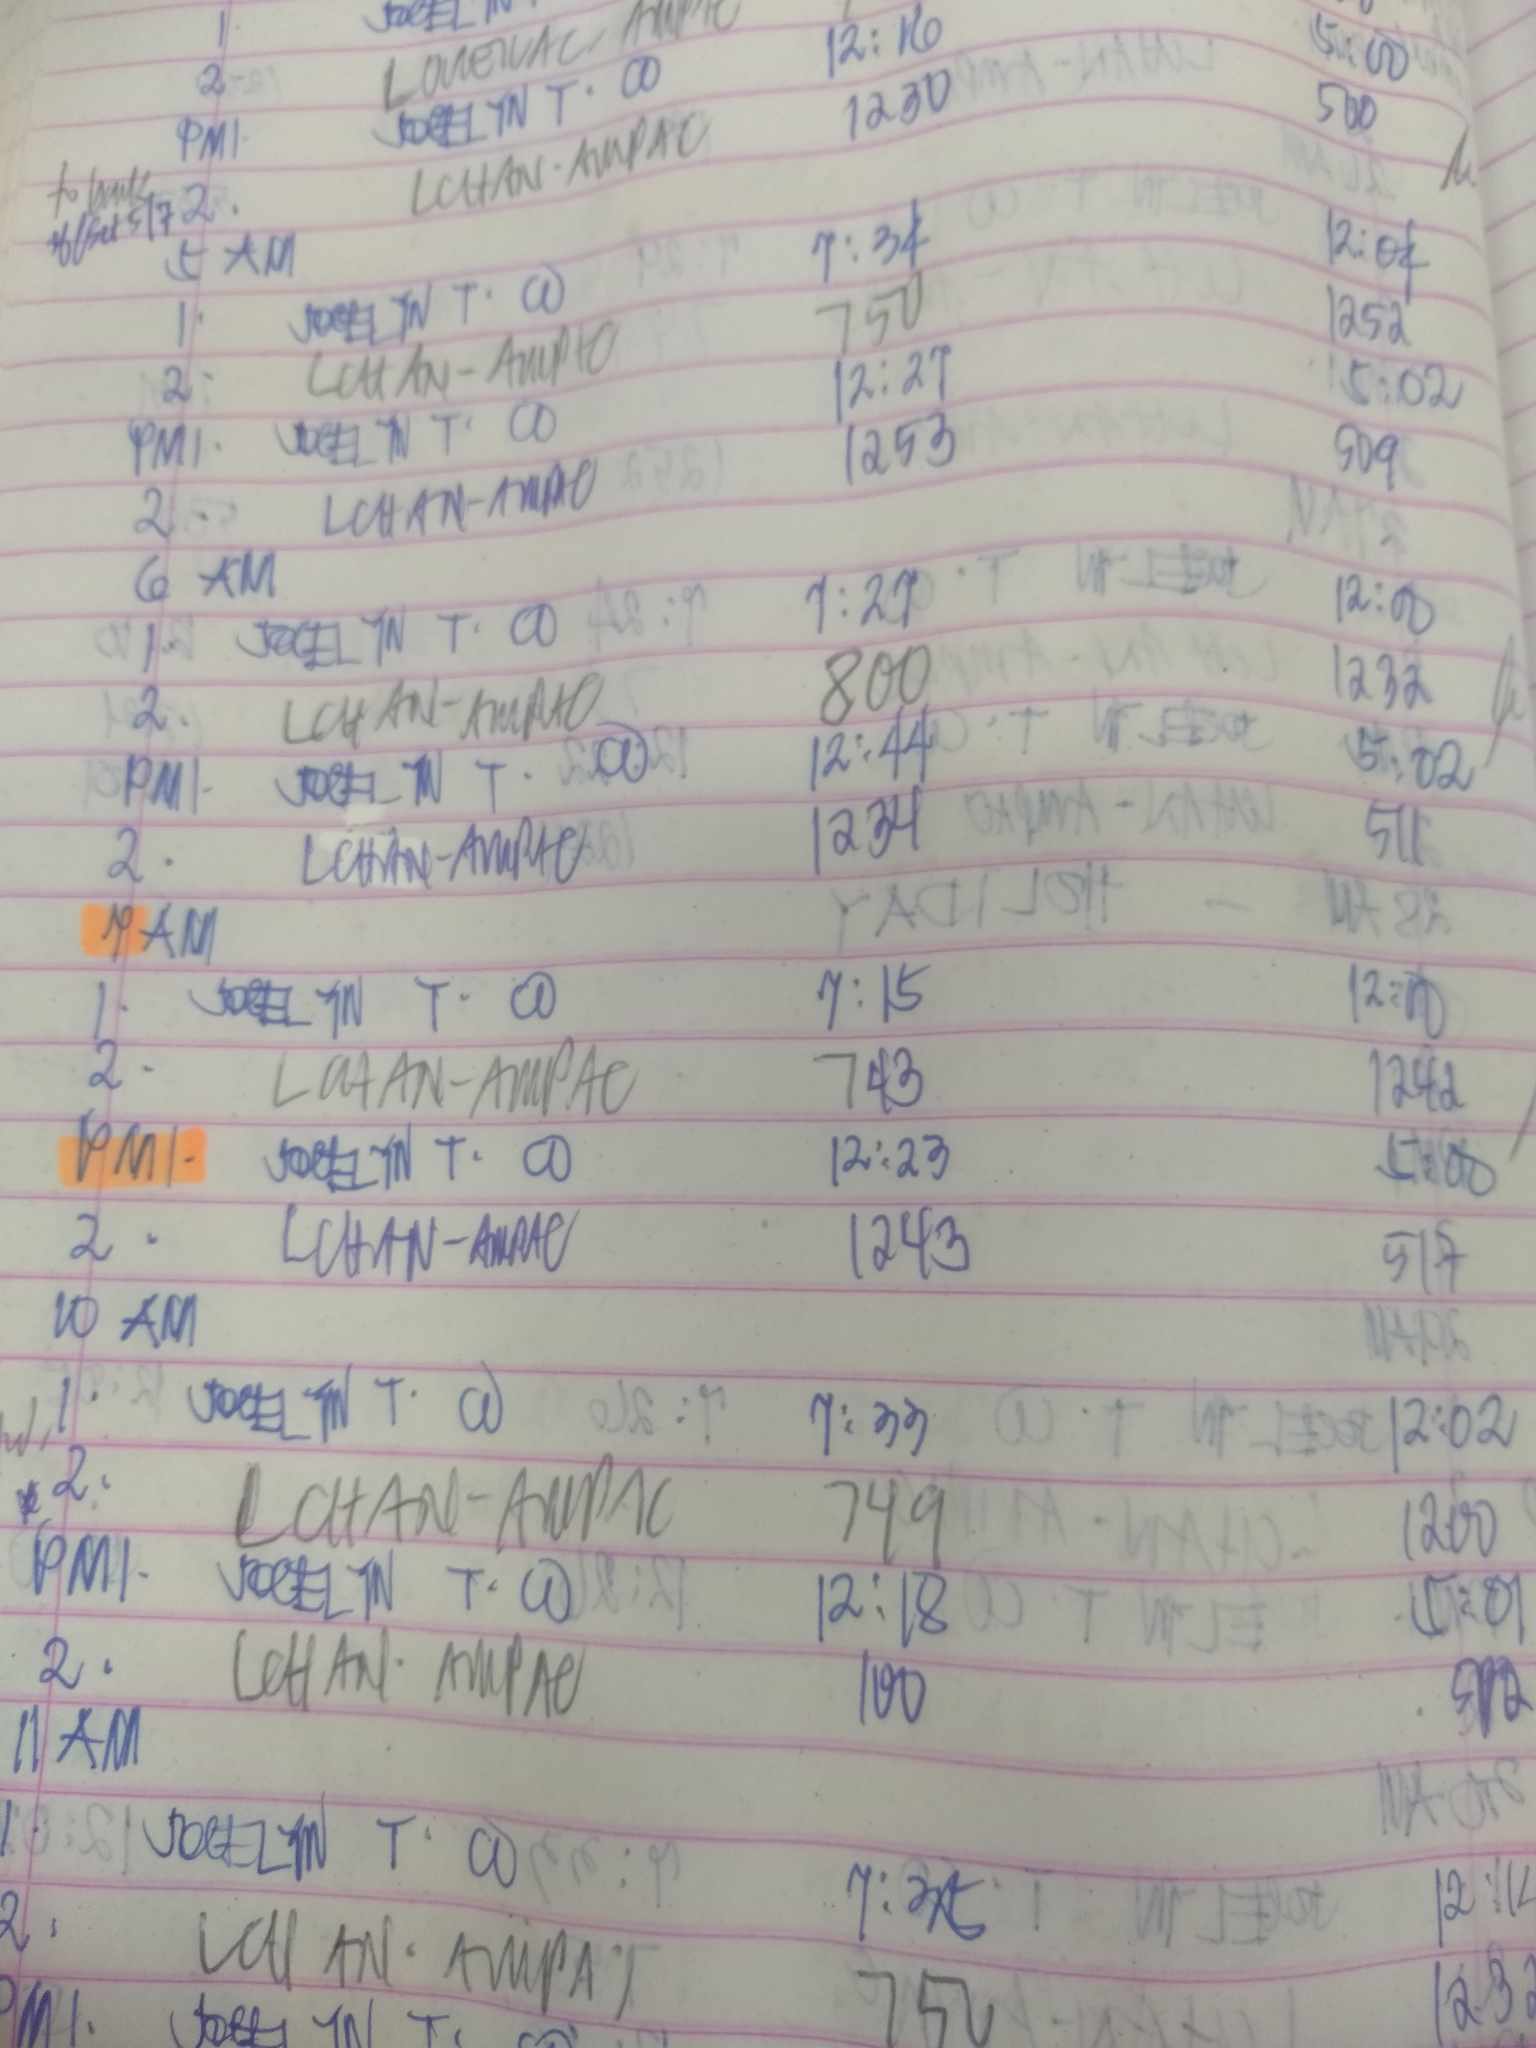 1. JOCELYN
2 LOUETCHAC AMPAC 12:16 5:00
PM1. JOCELYN T. CO 1230 500
2. LCHAN-AMPAC
5 AM
1. JOCELYN T. CO 7:34 12:04
2. LCHAN-AMPAC 750 1252
PM1. JOCELYN T. CO 12:27 5:02
2. LCHAN-AMPAC 1253 509
6 AM
1. JOCELYN T. CO 7:27 12:00
2. LCHAN-AMPAC 800 1232
PM1. JOCELYN T. CO 12:44 5:02
2. LCHAN-AMPAC 1234 511
7 AM
1. JOCELYN T. CO 7:15 12:00
2. LCHAN-AMPAC 743 1242
PM1. JOCELYN T. CO 12:23 5:00
2. LCHAN-AMPAC 1243 517
10 AM
1. JOCELYN T. CO 7:33 12:02
2. LCHAN-AMPAC 749 1200
PM1. JOCELYN T. CO 12:18 5:01
2. LCHAN. AMPAC 100 502
11 AM
1. JOCELYN T. CO 7:35 12:14
2. LCHAN. AMPAC 750 1232
PM1. JOCELYN T. CO